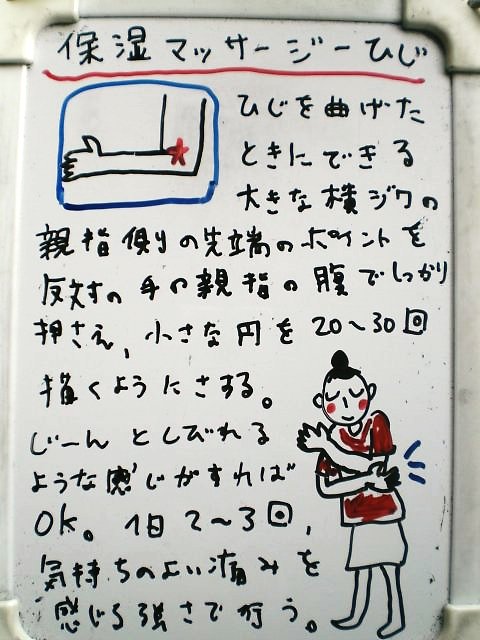 保湿マッサージーひじ
ひじを曲げた
ときにできる
大きな横ジワの
親指側の先端のポイントを
反対の手の親指の腹でしっかり
押さえ、小さな円を20〜30回
描くようにさする。
じーんとしびれる
ような感じがすれば
OK。1日2〜3回、
気持ちのよい痛みを
感じる強さで行う。